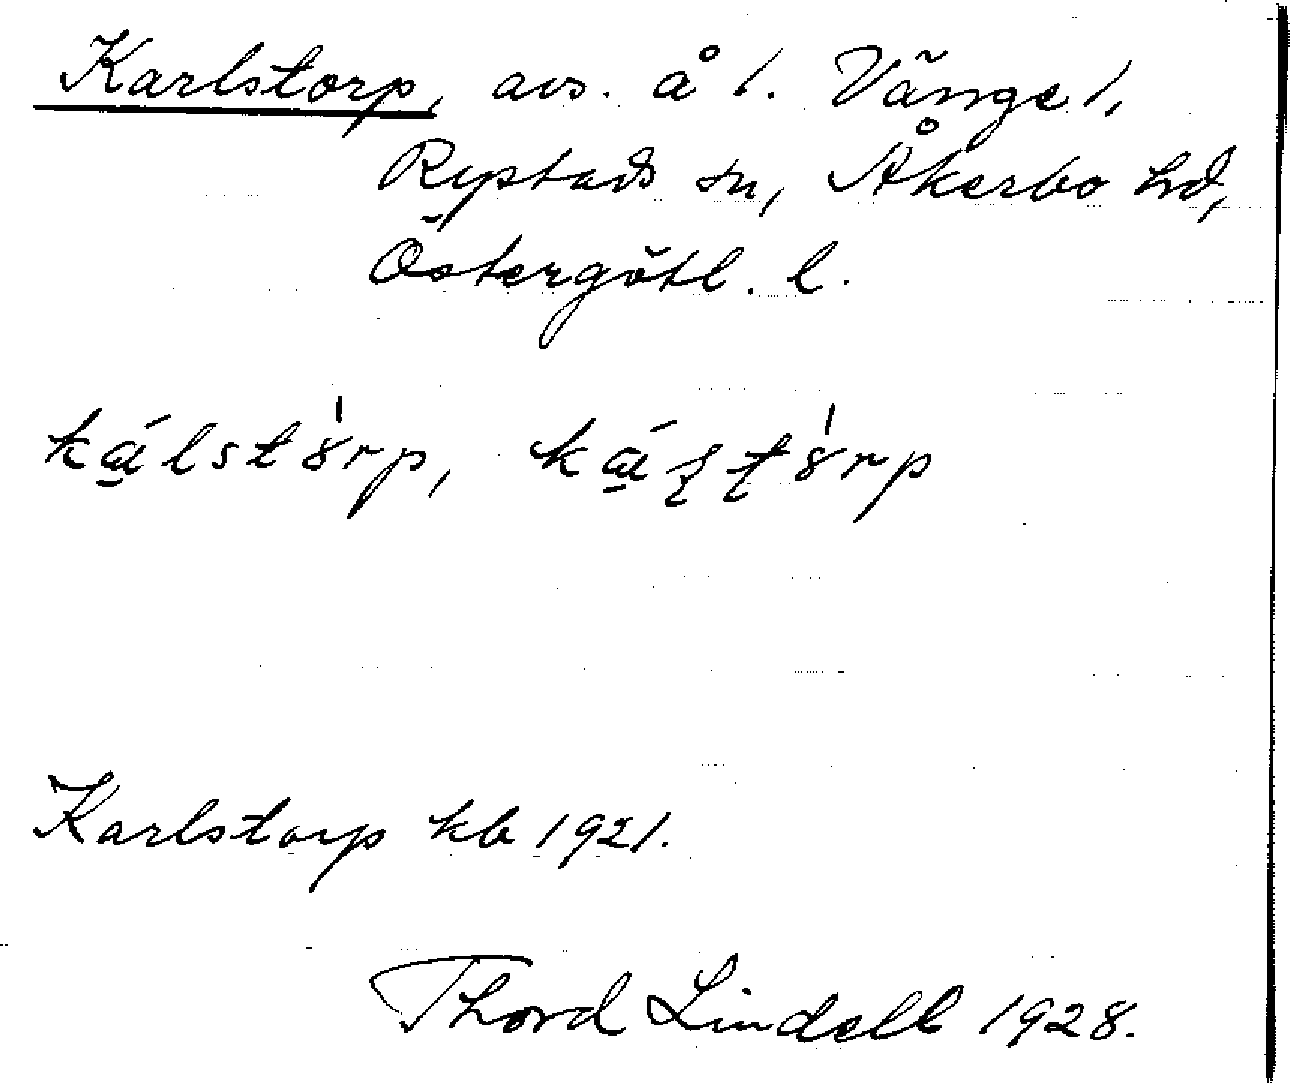 Karlstorp, avs. å 1. Vänge 1,
Rystads sn, Åkerbo hd,
Östergötl. l.
kálstòrp, káʂʈòrp
Karlstorp kb 1921.
Thord Lindell 1928.